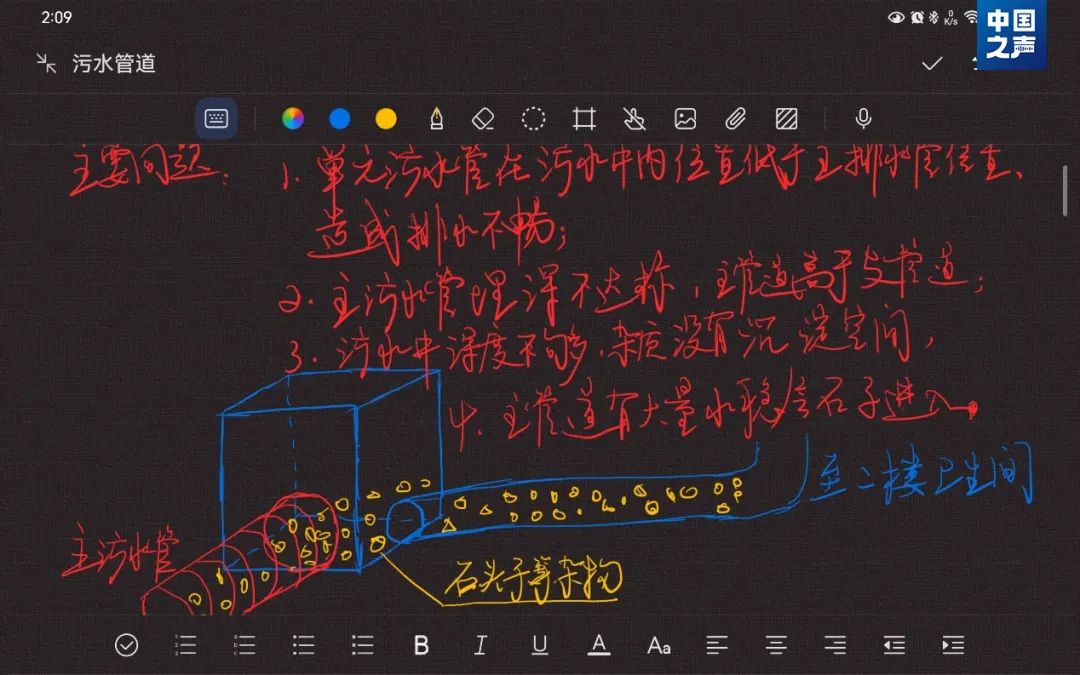 2:09
0
K/s
中国
之声
污水管道
主要问题: 1. 单元污水管在污水中内位置低于主排水管位置、
造成排水不畅;
2. 主污水管埋深不达标,主管道高于支管道;
3. 污水井深度不够,杂质没有沉淀空间,
4. 主管道有大量水稳层石子进入。
至二楼卫生间
主污水管
石头子等杂物
B I U A Aa